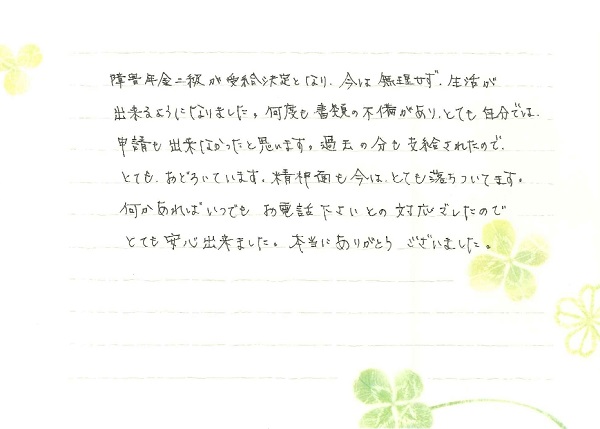 障害年金二級が受給決定となり、今は無理せず、生活が
出来るようになりました。何度も書類の不備があり、とても自分では、
申請も出来なかったと思います。過去の分も支給されたので、
とても、おどろいています。精神面も今は、とても落ちついてます。
何かあればいつでも お電話下さいとの対応でしたので
とても安心出来ました。本当にありがとう ございました。